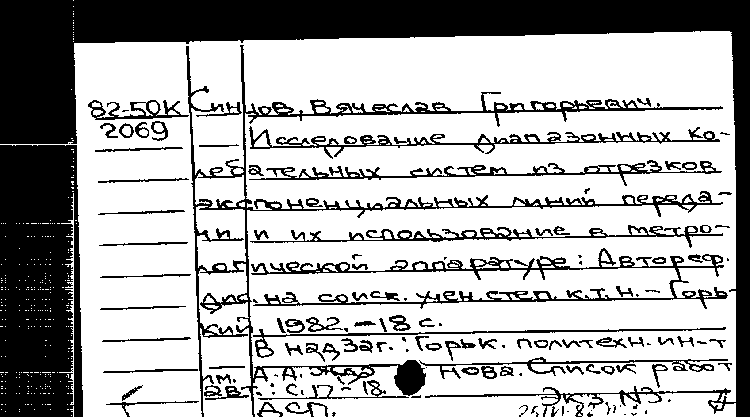 82-50К Синцов, Вячеслав Григорьевич.
2069
Исследование диапазонных ко-
лебательных систем из отрезков
экспоненциальных линий переда-
чи и их использование в метро-
логической аппаратуре: Автореф.
дис. на соиск. учен. степ. к.т.н. - Горь-
кий, 1982. - 18 с.
В надзаг.: Горьк. политехн. ин-т
им. А.А. Жда нова. Список работ
авт.: с. 17-18.
ДСП. Экз. №3.